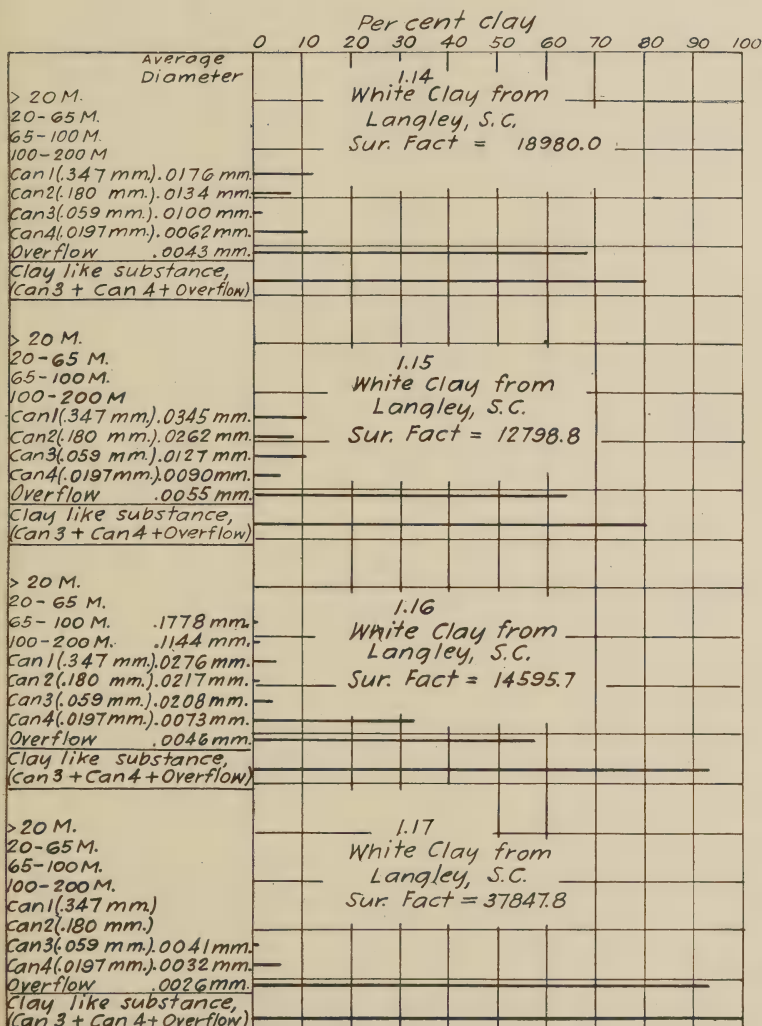 Per cent clay
0 10 20 30 40 50 60 70 80 90 100
Average
Diameter
> 20 M.
20-65 M.
65-100 M.
100-200 M
Can 1(.347 mm.).0176 mm.
Can2(.180 mm.).0134 mm.
Can3(.059 mm.).0100 mm.
Can4(.0197 mm.).0062 mm.
Overflow .0043 mm.
Clay like substance,
(Can 3 + Can 4 + Overflow)
1.14
White Clay from
Langley, S.C.
Sur. Fact = 18980.0
> 20 M.
20-65 M.
65-100 M.
100-200 M
Can1(.347 mm.).0345 mm.
Can2(.180 mm.).0262 mm.
Can3(.059 mm.).0127 mm.
Can4(.0197mm.).0090mm.
Overflow .0055 mm.
Clay like substance,
(Can 3 + Can 4 + Overflow)
1.15
White Clay from
Langley, S.C.
Sur. Fact = 12798.8
> 20 M.
20-65 M.
65-100 M. .1778 mm.
100-200 M. .1144 mm.
Can 1(.347 mm.).0276 mm.
Can 2(.180 mm.).0217 mm.
Can3(.059 mm.).0208 mm.
Can4(.0197mm.).0073 mm.
Overflow .0046 mm.
Clay like substance,
(Can 3 + Can 4 + Overflow)
1.16
White Clay from
Langley, S.C.
Sur. Fact = 14595.7
> 20 M.
20-65 M.
65-100 M.
100-200 M.
Can1(.347 mm.)
Can2(.180 mm.)
Can3(.059 mm.).0041 mm.
Can4(.0197 mm.).0032 mm.
Overflow .0026 mm.
Clay like substance,
(Can 3 + Can 4 + Overflow)
1.17
White Clay from
Langley, S.C.
Sur. Fact = 37847.8